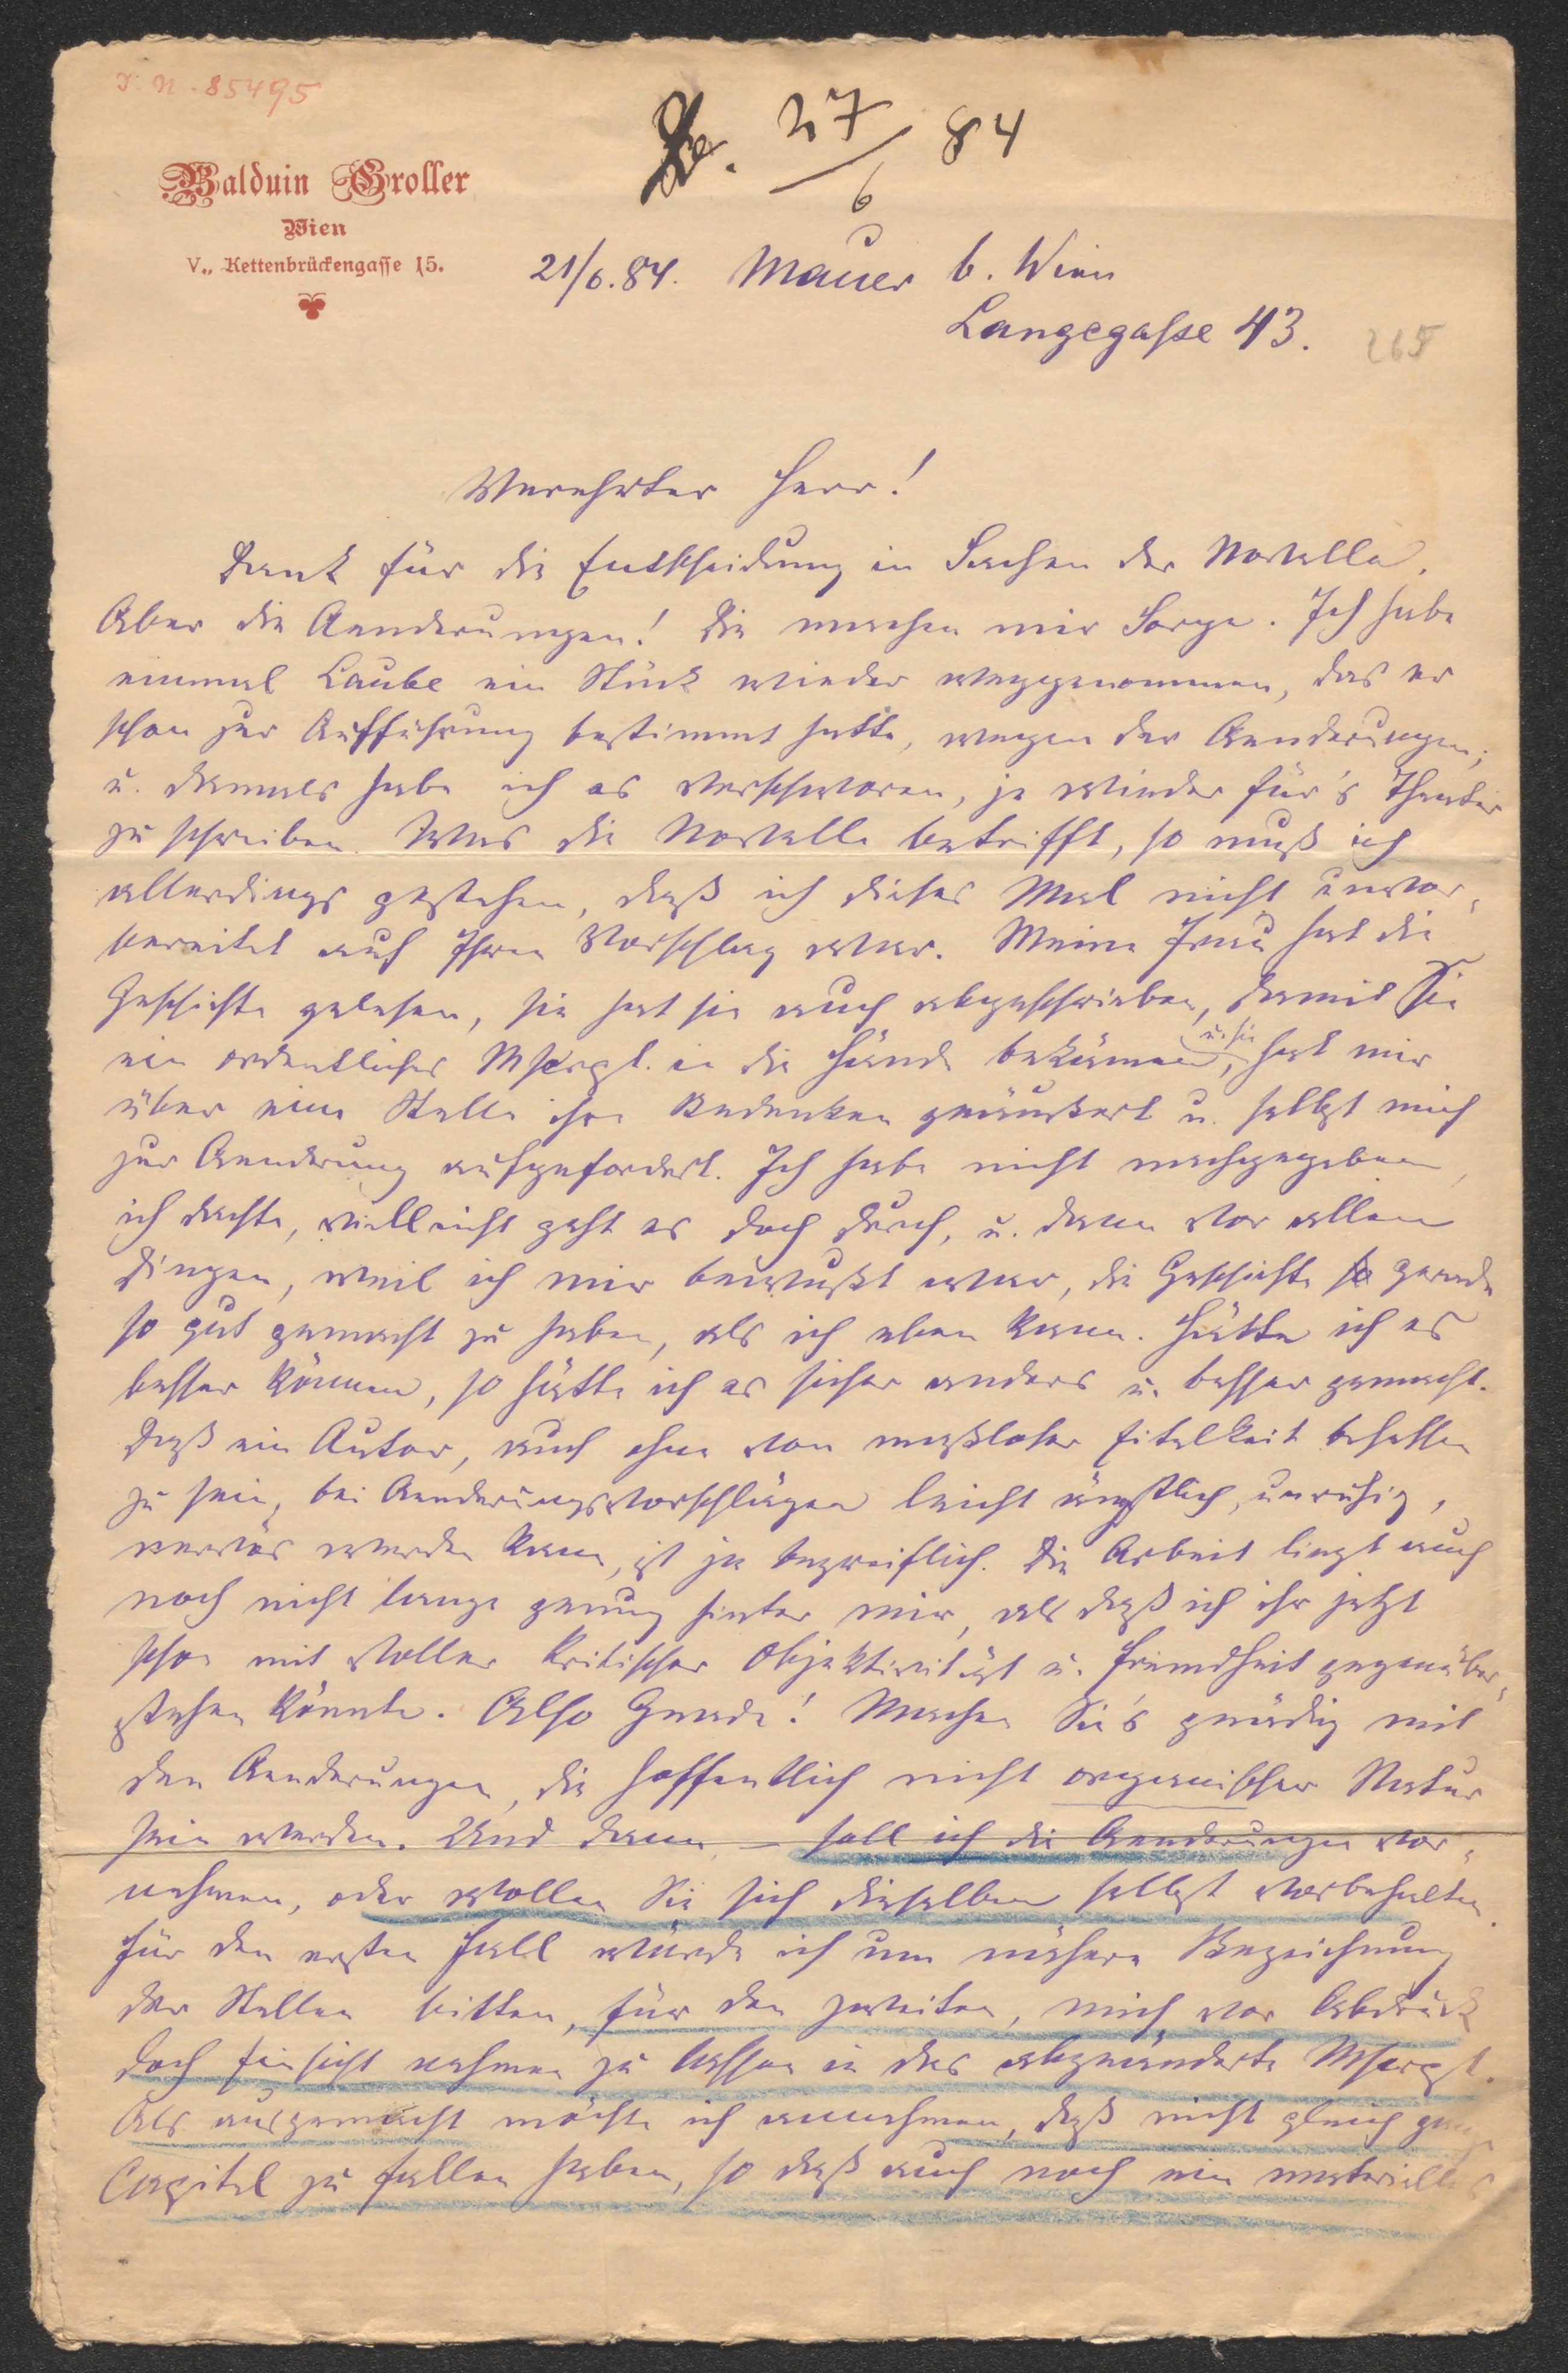 I. N. 85495
Be. 27/6 84
Balduin Groller
Wien
V., Kettenbrückengasse 15.
21/6.84. Mauer b. Wien
Langegasse 43.
265
Verehrter Herr!
Dank für die Entscheidung in Sachen der Novelle.
Aber die Aenderungen! Die machen mir Sorge. Ich habe
einmal Laube ein Stück wieder weggenommen, das er
schon zur Aufführung bestimmt hatte, wegen der Aenderungen;
u. damals habe ich es verschworen, je wieder für's Theater
zu schreiben. Was die Novelle betrifft, so muß ich
allerdings gestehen, daß ich dieses Mal nicht unvor-
bereitet auf Ihren Vorschlag war. Meine Frau hat die
Geschichte gelesen, sie hat sie auch abgeschrieben, damit Sie
ein ordentliches Mscrpt. in die Hände bekämen, u. sie hat mir
über eine Stelle ihre Bedenken geäußert u. selbst mich
zur Aenderung aufgefordert. Ich habe nicht nachgegeben,
ich dachte, vielleicht geht es doch durch, u. dann vor allen
Dingen, weil ich mir bewußt war, die Geschichte so gerade
so gut gemacht zu haben, als ich eben kann. Hätte ich es
besser können, so hätte ich es sicher anders u. besser gemacht.
Daß ein Autor, auch ohne von maßloser Eitelkeit besessen
zu sein, bei Aenderungsvorschlägen leicht ängstlich, unruhig,
nervös werden kann, ist ja begreiflich. Die Arbeit liegt auch
noch nicht lange genug hinter mir, als daß ich ihr jetzt
schon mit voller kritischer Objektivität u. Fremdheit gegenüber-
stehen könnte. Also Gnade! Machen Sie's gnädig mit
den Aenderungen, die hoffentlich nicht organischer Natur
sein werden. Und dann – soll ich die Aenderungen vor-
nehmen, oder wollen Sie sich dieselben selbst vorbehalten.
Für den ersten Fall würde ich um nähere Bezeichnung
der Stellen bitten, für den zweiten, mich vor Abdruck
doch Einsicht nehmen zu lassen in das abgeänderte Mscrpt.
Als ausgemacht möchte ich annehmen, daß nicht gleich ganze
Capitel zu fallen haben, so daß auch noch ein materielles